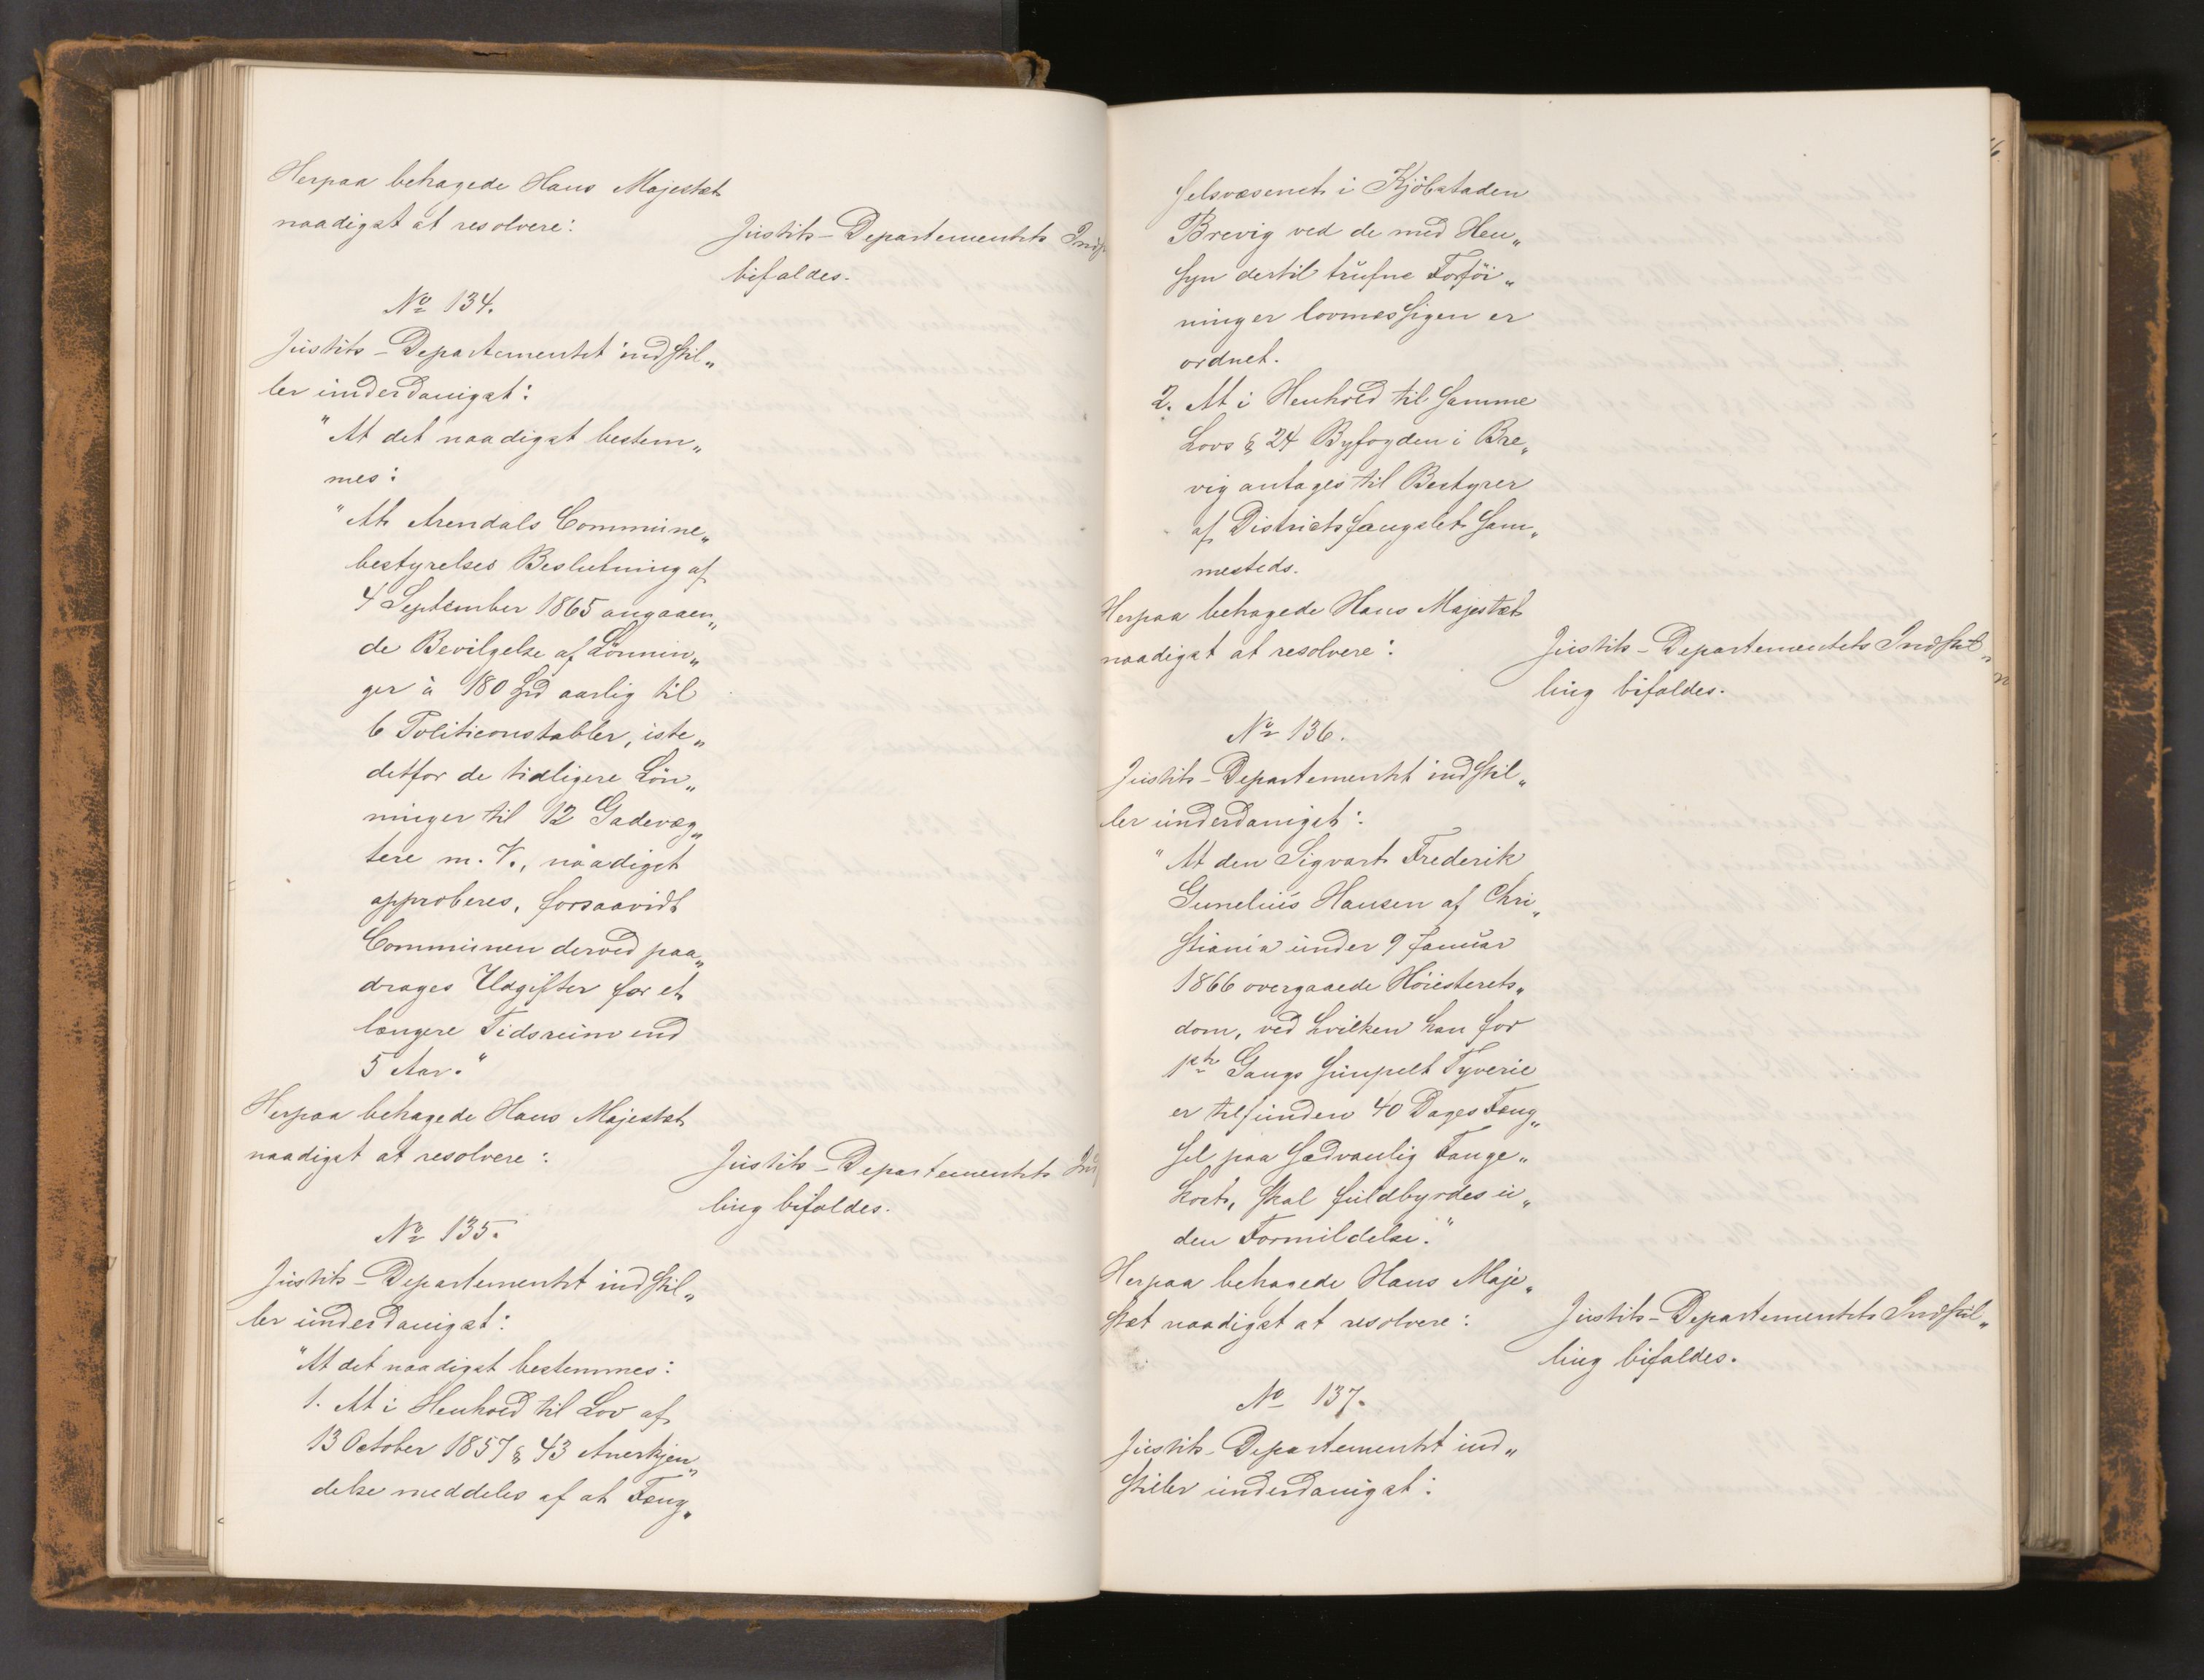 Herpaa behagede Hans Majestæt
naadigst at resolvere:
Justits-Departementets
bifaldes.
No 134.
Justits-Departementet indstil„
ler underdanigst:
"At det naadigst bestem„
mes:
"At Arendals Commune„
bestyrelses Beslutning af
4 September 1865 angaaen„
de Bevilgelse af Lönnin„
ger à 180 Spd aarlig til
6 Politiconstabler, iste„
detfor de tidligere Lön„
ninger til 12 Gadevæg„
tere m. V., naadigst
approberes, forsaavidt
Communen derved paa„
drages Udgifter for et
længere Tidsrum end
5 Aar."
Herpaa behagede Hans Majestæt
naadigst at resolvere:
Justits-Departementets
ling bifaldes.
No 135.
Justits-Departementet indstil„
ler underdanigst:
"At det naadigst bestemmes:
1. At i Henhold til Lov af
13 October 1857 § 43 Anerkjen„
delse meddeles af at Fæng„
selsvæsenet i Kjöbstaden
Brevig ved de med Hen„
syn dertil trufne Forföi„
ninger lovmæssigen er
ordnet.
2. At i Henhold til samme
Lovs § 24 Byfogden i Bre„
vig antages til Bestyrer
af Districtsfængslet sam„
mesteds.
Herpaa behagede Hans Majestæt
naadigst at resolvere:
Justits-Departementets Indstil„
ling bifaldes.
No 136.
Justits-Departementet indstil„
ler underdanigst:
"At den Sigvart Frederik
Gunelius Hansen af Chri„
stiania under 9 Januar
1866 overgaaede Höiesterets„
dom, ved hvilken han for
1ste Gangs simpelt Tyverie
er tilfunden 40 Dages Fæng„
sel paa sædvanlig Fange„
kost, skal fuldbyrdes u„
den Formildelse."
Herpaa behagede Hans Maje„
stæt naadigst at resolvere:
Justits-Departementets Indstil„
ling bifaldes.
No 137.
Justits-Departementet ind„
stiller underdanigst: